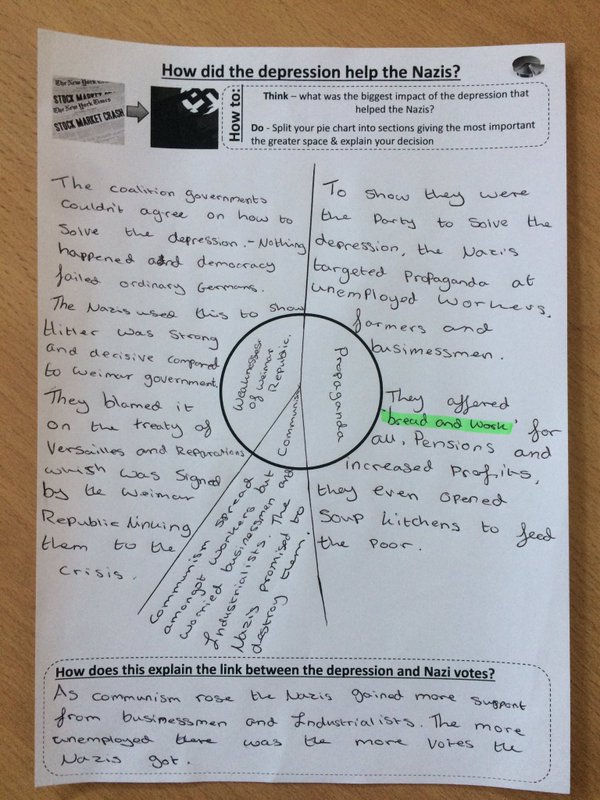 How did the depression help the Nazis?
The New York Times
STOCK MARKET CR
The New York Times
STOCK MARKET CRASH
How to:
Think – what was the biggest impact of the depression that
helped the Nazis?
Do - Split your pie chart into sections giving the most important
the greater space & explain your decision
The coalition governments
couldn't agree on how to
Solve the depression. - Nothing
happened and democracy
failed ordinary Germans.
The Nazis used this to show
Hitler was strong
and decisive compared
to Weimar government.
They blamed it
on the treaty of
Versailles and Reparations
which was signed
by the Weimar
Republic linking
them to the
crisis.
Weaknesses
of Weimar
Republic.
Communism
Communism spread
amongst workers but
worried businessmen and
Industrialists. The
Nazis promised to
destroy them.
Propaganda
To show they were
the Party to Solve the
depression, the Nazis
targeted propaganda at
unemployed workers,
farmers and
businessmen.
They offered
'bread and work' for
all, Pensions and
increased profits,
they even opened
Soup kitchens to feed
the poor.
How does this explain the link between the depression and Nazi votes?
As communism rose the Nazis gained more support
from businessmen and Industrialists. The more
unemployed there was the more votes the
Nazis got.